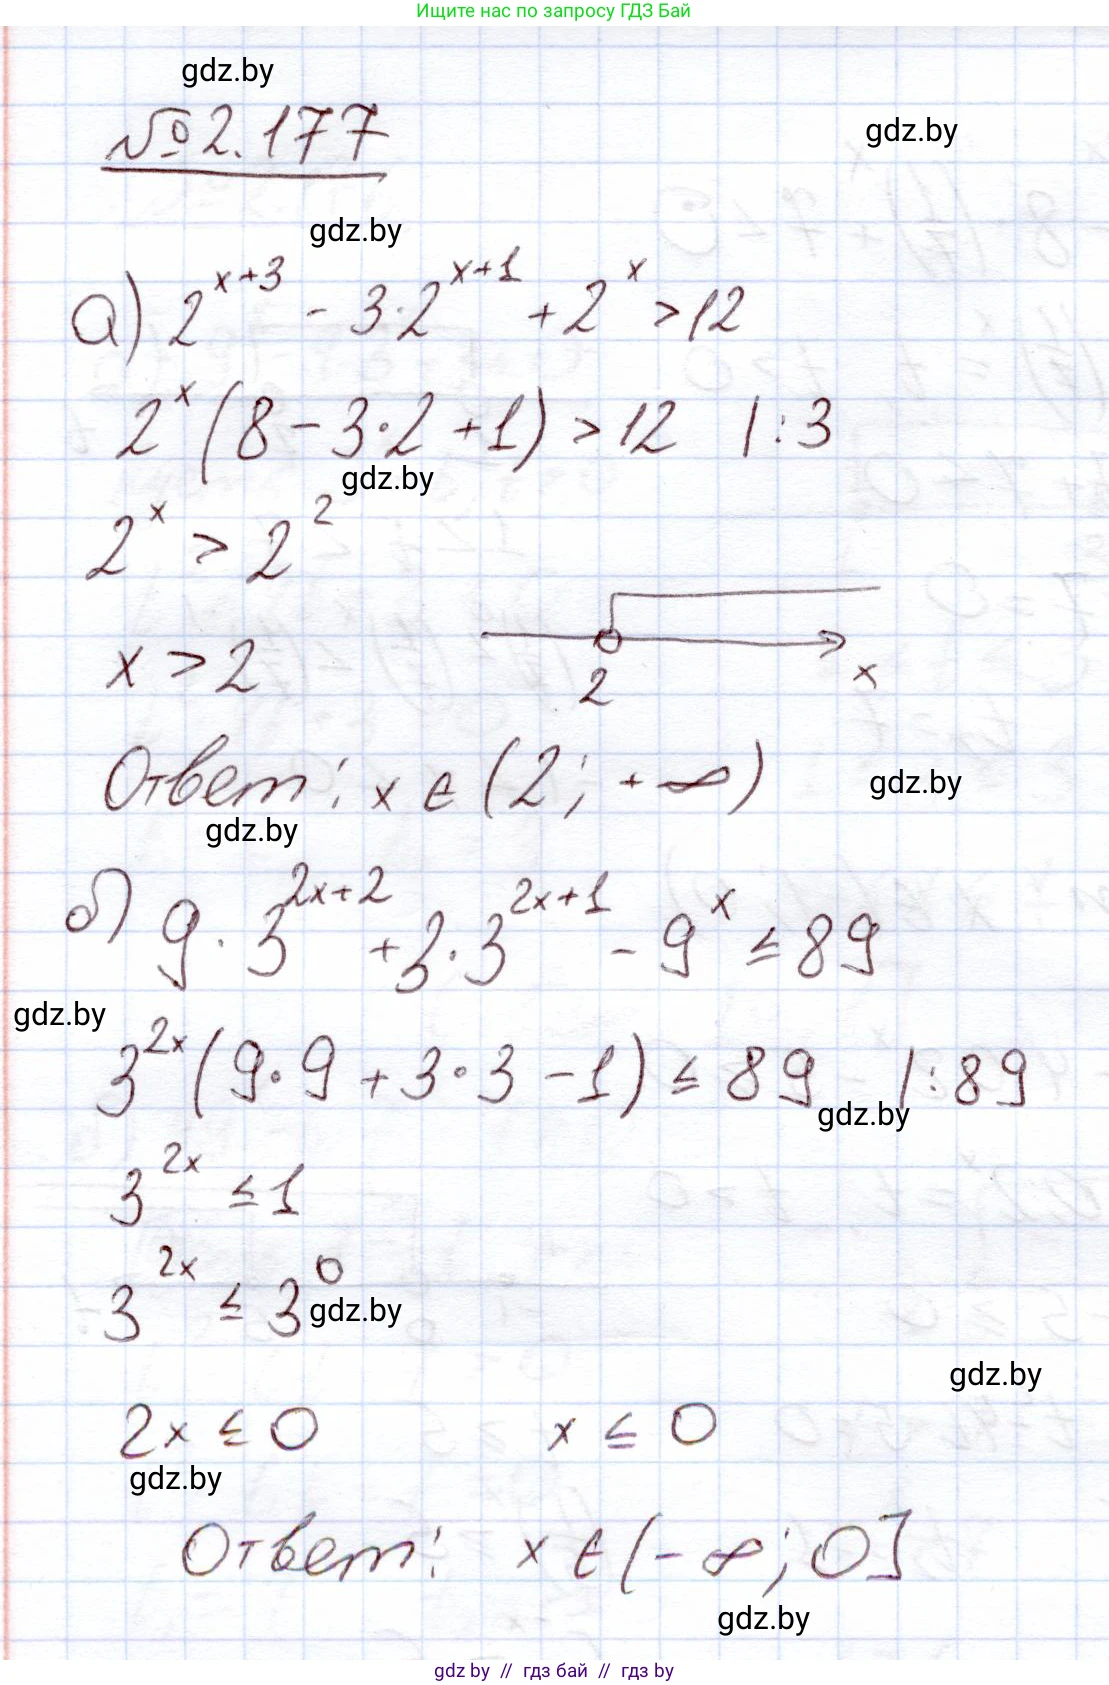 Ищите нас по запросу ГДЗ Бай
gdz.by
№2.177
gdz.by
gdz.by
а) 2^{x+3} - 3·2^{x+1} + 2^x > 12
2^x (8 - 3·2 + 1) > 12 | : 3
gdz.by
2^x > 2^2
x > 2
2
x
Ответ: x ∈ (2; +∞)
gdz.by
gdz.by
б) 9·3^{2x+2} + 3·3^{2x+1} - 9^x ≤ 89
gdz.by
3^{2x} (9·9 + 3·3 - 1) ≤ 89 | : 89
gdz.by
3^{2x} ≤ 1
3^{2x} ≤ 3^0
gdz.by
gdz.by
2x ≤ 0 x ≤ 0
gdz.by
Ответ: x ∈ (-∞; 0]
gdz.by
gdz by // гдз бай // гдз by